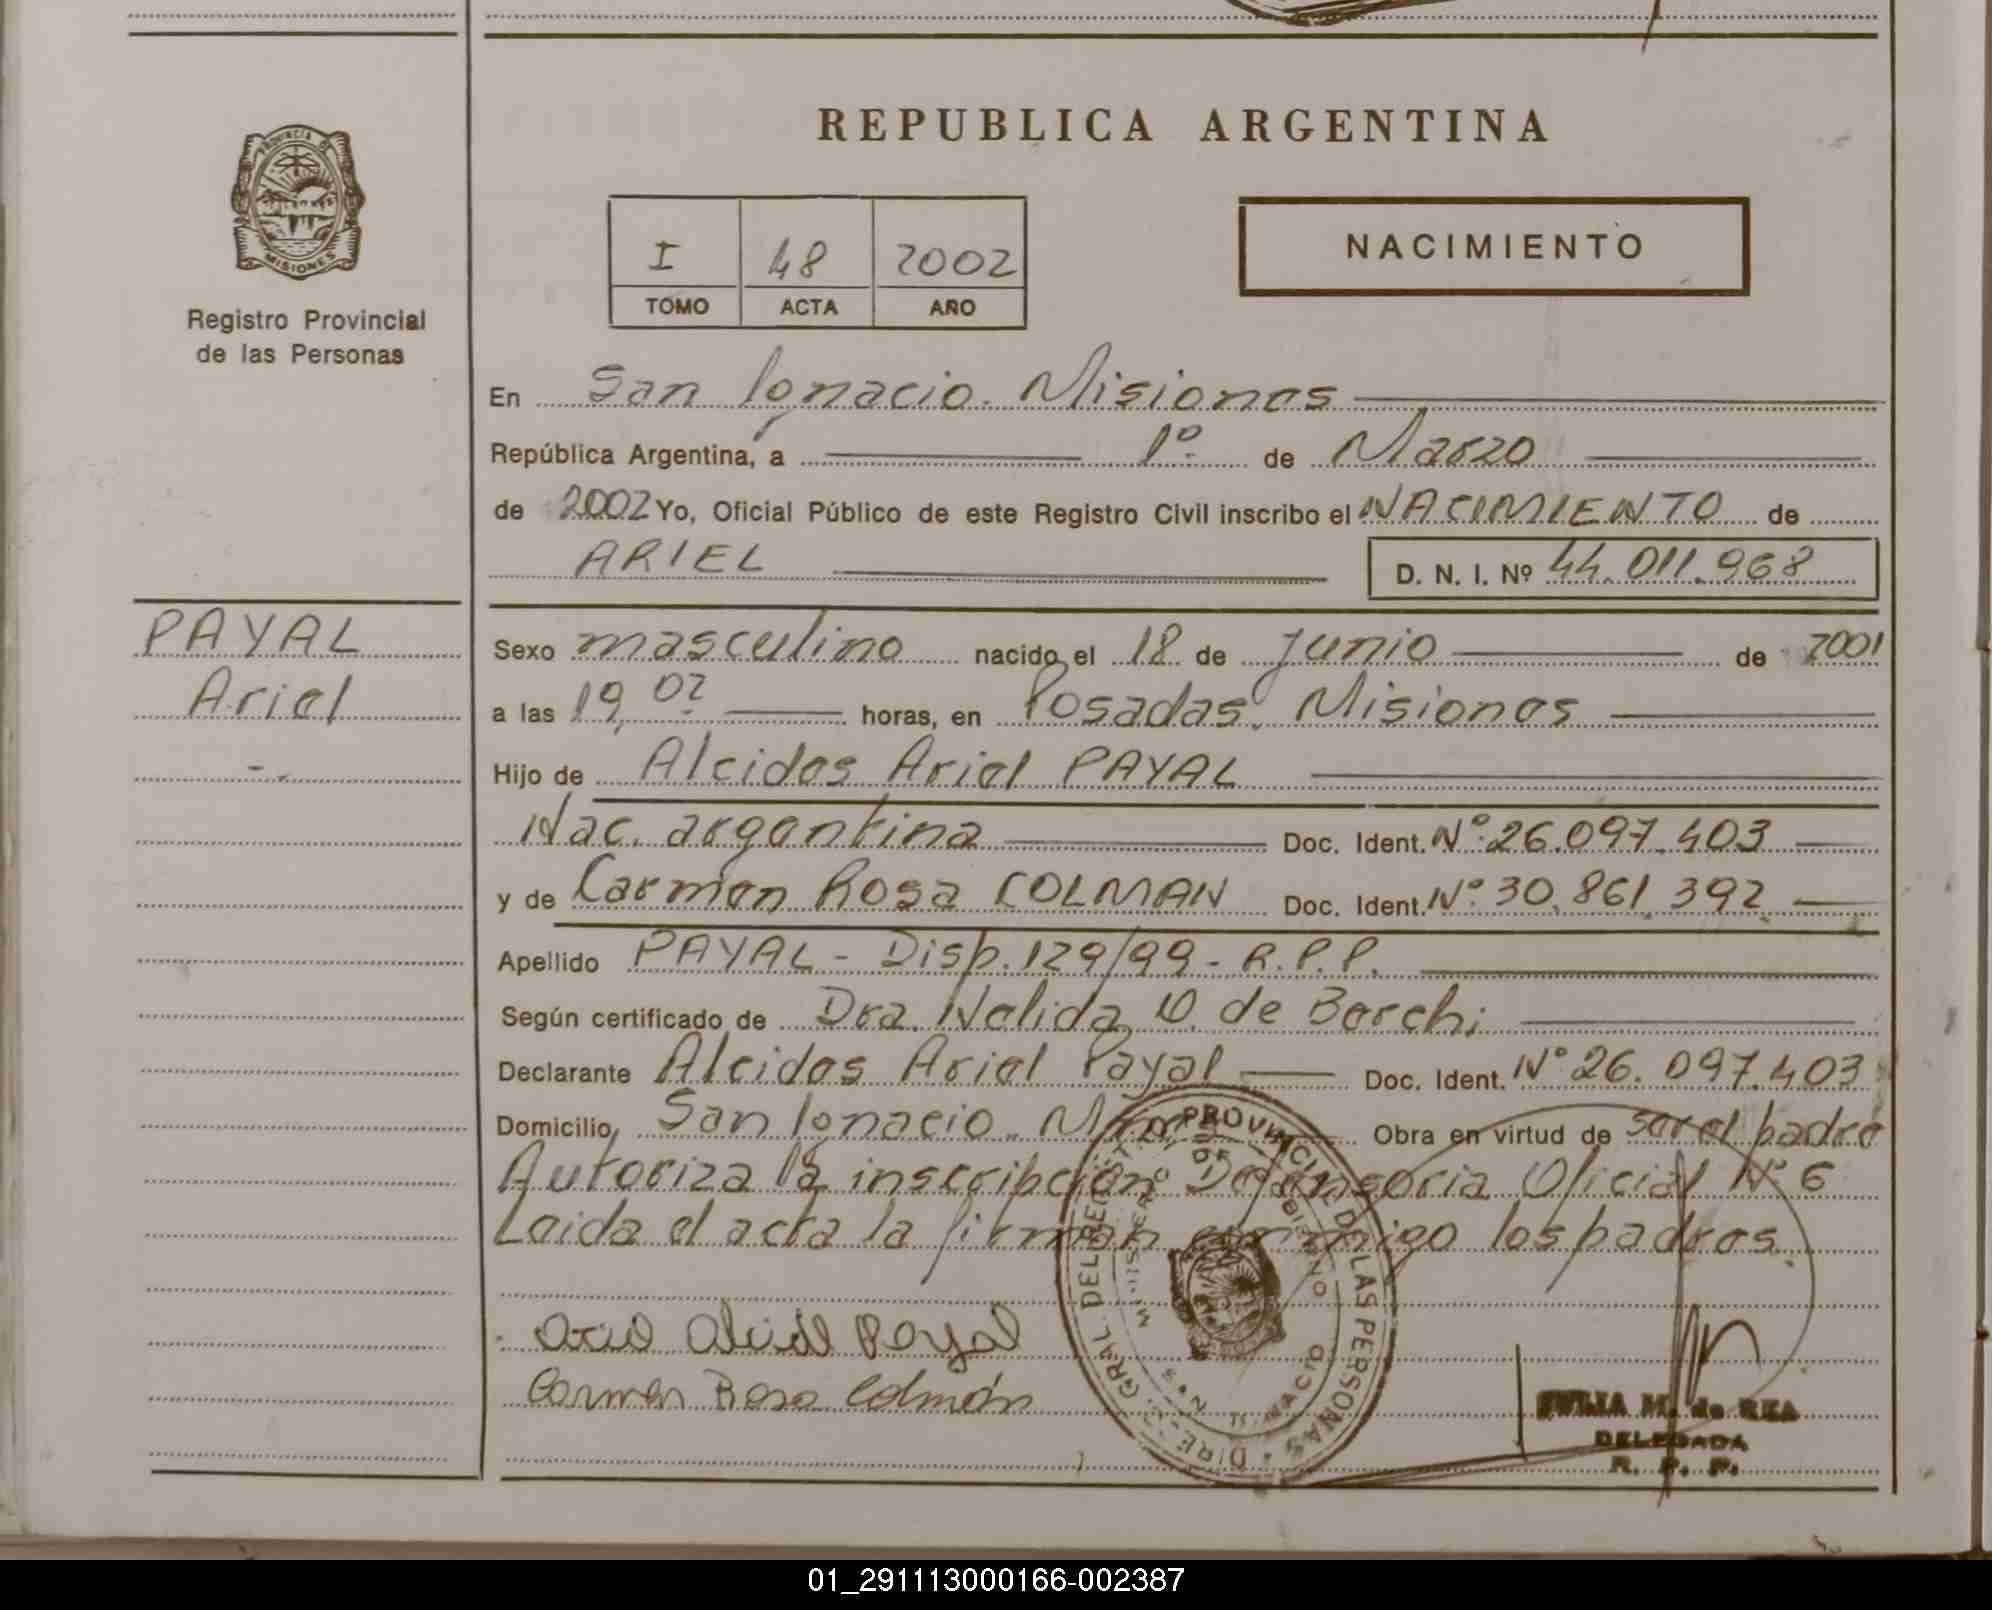 REPUBLICA ARGENTINA
PROVINCIA DE MISIONES
Registro Provincial
de las Personas
I 48 2002
TOMO ACTA AÑO
NACIMIENTO
En San Ignacio. Misiones
República Argentina, a 1º de Marzo
de 2002 Yo, Oficial Público de este Registro Civil inscribo el NACIMIENTO de
ARIEL D. N. I. Nº 44.011.968
PAYAL
Ariel
Sexo masculino nacido el 18 de Junio de 2001
a las 19,02 horas, en Posadas. Misiones
Hijo de Alcides Ariel PAYAL
Nac. argentina Doc. Ident. Nº 26.097.403
y de Carmen Rosa COLMAN Doc. Ident. Nº 30.861.392
Apellido PAYAL - Disp. 129/99 - R.P.P.
Según certificado de Dra. Nelida D. de Borchi
Declarante Alcides Ariel Payal Doc. Ident. Nº 26.097.403
Domicilio San Ignacio Obra en virtud de ser el padre
Autoriza la inscripción Defensoria Oficial Nº 6
Leida el acta la firman conmigo los padres.
Payal
Carmen Rosa Colmán
DIREC. GRAL. DEL REGIST. PROVINCIAL DE LAS PERSONAS
MINISTERIO DE GOBIERNO
SAN IGNACIO
JULIA M. de REA
DELEGADA
R. P. P.
01_291113000166-002387